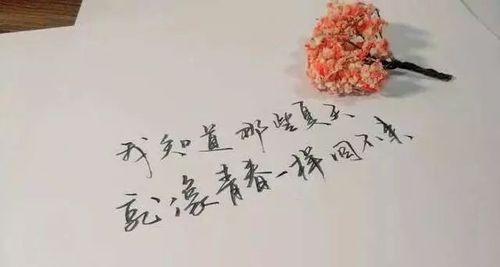 我知道那些夏天
就像青春一样回不来